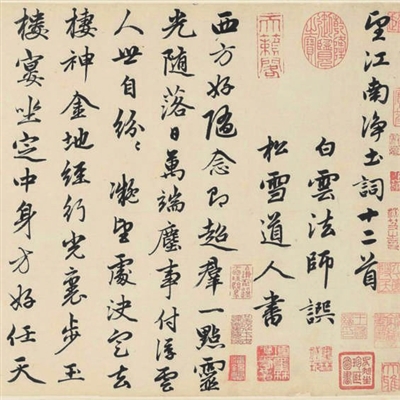 望江南净土詞十二首
白雲法師譔
松雪道人書
西方好随念即超羣一點靈
光随落日萬端塵事付浮雲
人世自紛〻凝望處决定去
棲神金地經行光裏步玉
樓宴坐定中身方好任天
天籟閣